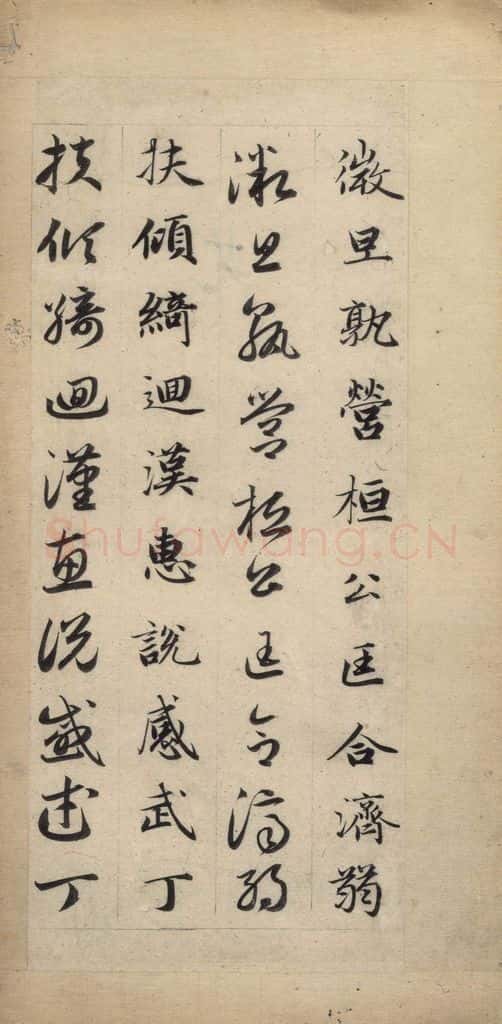 微旦孰營桓公匡合濟弱
微旦孰營桓公匡合濟弱
扶傾綺迴漢惠說感武丁
扶傾綺迴漢惠說感武丁
Shufawang.CN